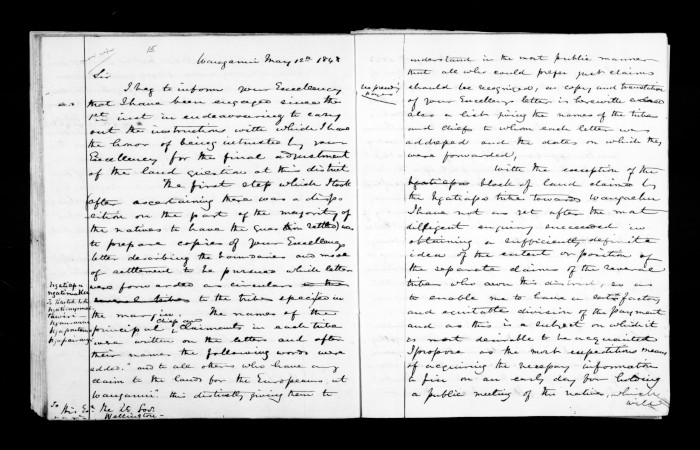 15
Wanganui May 12th 1848
Sir
I beg to inform your Excellency
that I have been engaged since the
1st inst in endeavouring to carry
out the instructions with which I have
the honor of being intrusted by your
Excellency for the final adjustment
of the land question at this district
The first step which I took
after ascertaining there was a dispo
sition on the part of the majority of
the natives to have the question settled was
to prepare copies of your Excellency
letter describing the boundaries and mode
of settlement to be pursued which letter
were forwarded as circulars to the
several tribes to the tribes specified in
the margin. The names of the
chief and
principal claimants in each tribe
were written on the letter and after
their names the following words were
added. "and to all others who have any
claim to the lands for the Europeans at
Wanganui" this distinctly giving them to
Ngatiapa
To His Ex. the Lt Gov.
Wellington
understand in the most public manner
that all who could prefer just claims
should be recognized, a copy and translation
of your Excellency letter is herewith
also a list giving the names of the tribes
and chiefs to whom each letter was
addressed and the dates on which they
were forwarded,
With the exception of the
Ngatiapa block of land claimed by
the Ngatiapa tribe towards Wangaehu
I have not as yet after the most
diligent enquiry succeeded in
obtaining a sufficiently definite
idea of the extent or position of
the separate claims of the several
tribes who own this district, so as
to enable me to have a satisfactory
and equitable division of the payment
and as this is a subject on which it
is most desirable to be acquainted
I propose as the most expeditious means
of acquiring the necessary information
to fix on an early day for holding
a public meeting of the natives, which
will